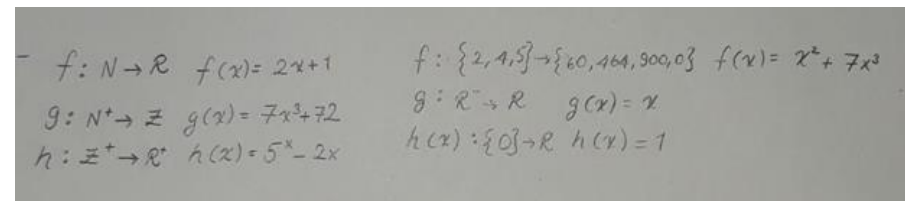 - f: N → R f(x) = 2x+1
g: N⁺ → Z g(x) = 7x³+72
h: Z⁺ → R⁺ h(x) = 5ˣ - 2x
f: {2,4,5} → {60,464,900,0} f(x) = x² + 7x³
g: R⁻ → R g(x) = x
h(x): {0} → R h(x) = 1